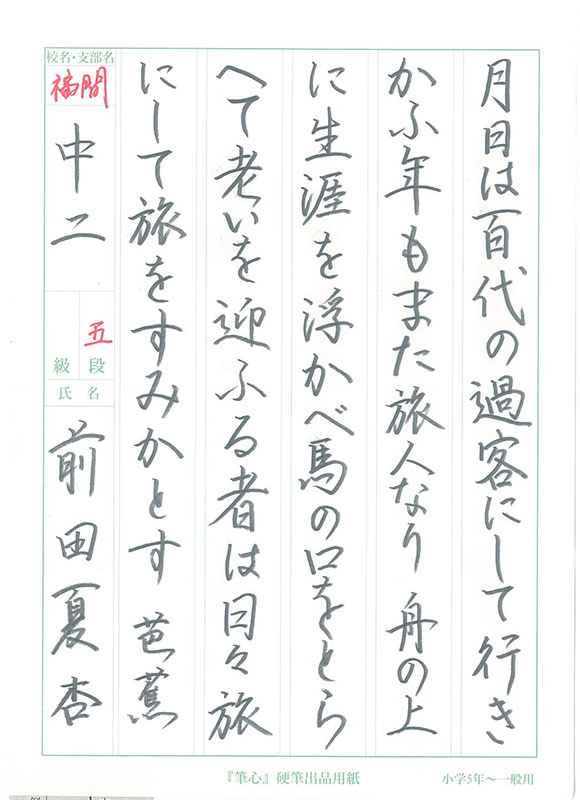 月日は百代の過客にして行き
かふ年もまた旅人なり 舟の上
に生涯を浮かべ馬の口をとら
へて老いを迎ふる者は日々旅
にして旅をすみかとす 芭蕉
校名・支部名
福間
中二
五
級 段
氏名
前田夏杏
『筆心』硬筆出品用紙
小学5年〜一般用